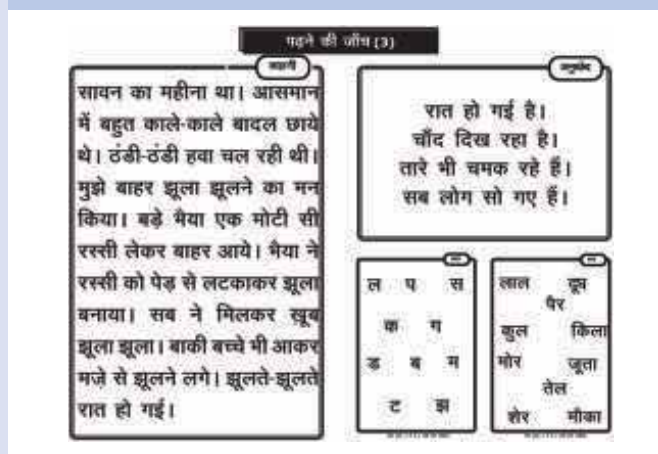 पढ़ने की जाँच (3)
कहानी
सावन का महीना था। आसमान
में बहुत काले-काले बादल छाये
थे। ठंडी-ठंडी हवा चल रही थी।
मुझे बाहर झूला झूलने का मन
किया। बड़े भैया एक मोटी सी
रस्सी लेकर बाहर आये। भैया ने
रस्सी को पेड़ से लटकाकर झूला
बनाया। सब ने मिलकर खूब
झूला झूला। बाकी बच्चे भी आकर
मज़े से झूलने लगे। झूलते-झूलते
रात हो गई।
अनुच्छेद
रात हो गई है।
चाँद दिख रहा है।
तारे भी चमक रहे हैं।
सब लोग सो गए हैं।
ल प स
क ग
ड ब म
ट झ
लाल
पैर
कुल किला
मोर जूता
तेल
शेर मौका